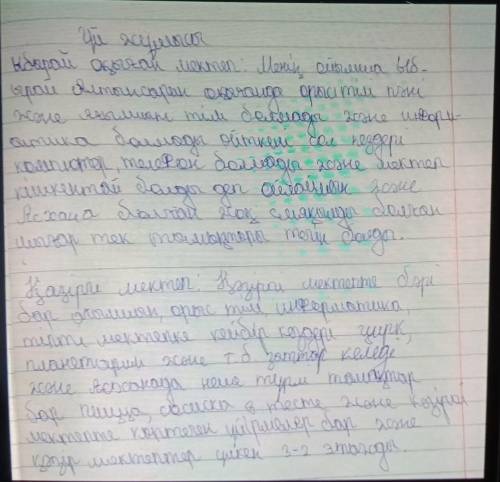 Үй жұмысы
Ыбырай оқыған мектеп: Менің ойымша Ыб-
ырай Алтынсарин оқығанда орыс тілі пән
және ағылшын тілі болмады және инфор-
матика болмады өйткені сол кездері
компютер, телефон болмады және мектеп
кішкентай болды деп ойлаймын және
Асхана болған жоқ сияқты болған
шығар тек тамақтары тегін болды.
Қазіргі мектеп: Қазіргі мектепте бәрі
бар ағылшын, орыс тілі, информатика,
тіпті мектепке кейбір кездері цирк,
планетарий және т.б. заттар келеді
және Асханада неше түрлі тамақтар
бар пицца, сасиска в тесте және қазіргі
мектепте көптеген үйірмелер бар және
қазір мектептер үлкен 3-2 этажды.